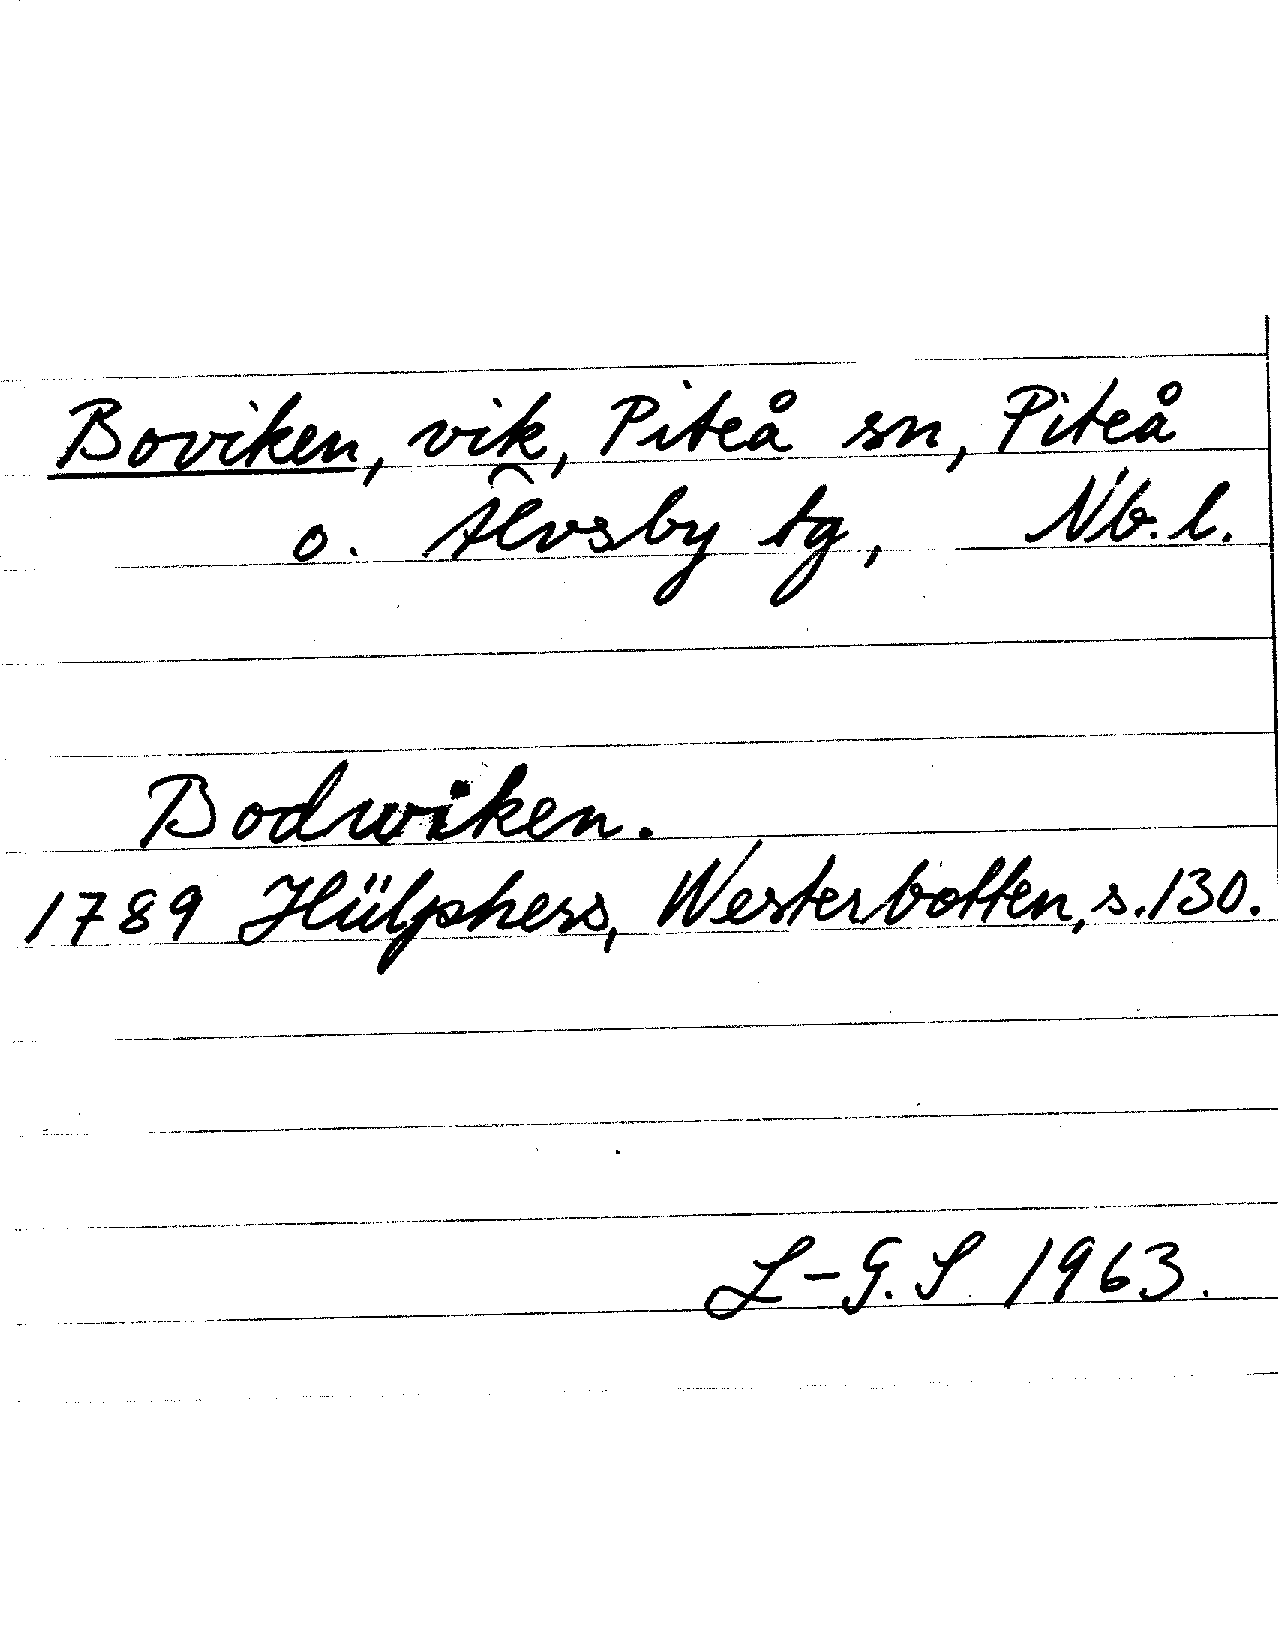 Boviken, vik, Piteå sn, Piteå
o. Älvsby tg, Nb. l.
Bodwiken.
1789 Hülphers, Westerbotten, s. 130.
L-G. S 1963.